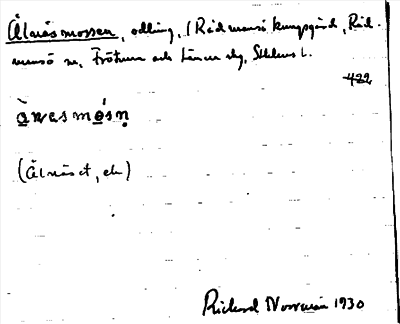 Ålnäsmossen, odling, (Rådmansö kungsgård, Råd-
mansö sn, Frötuna och Länna skg, Sthlms l.
422
(Ålnäset, eh)
Rickard Norrman 1930